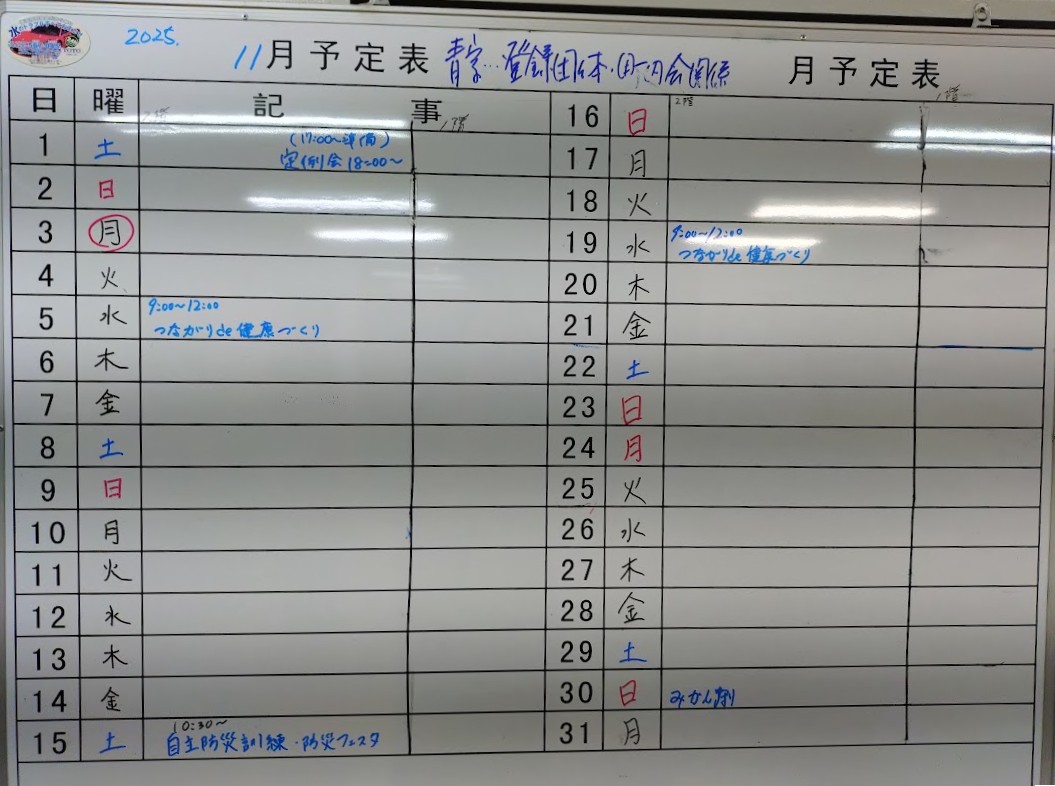 2025.
11月予定表
青字…登録団体・町内会関係
月予定表
日 曜 記事
2階 1階
1 土 (17:00~準備)
定例会 18:00~
2 日
3 月
4 火
5 水 9:00~12:00
つながりde健康づくり
6 木
7 金
8 土
9 日
10 月
11 火
12 水
13 木
14 金
15 土 10:30~
自主防災訓練・防災フェスタ
2階 1階
16 日
17 月
18 火
19 水 9:00~12:00
つながりde健康づくり
20 木
21 金
22 土
23 日
24 月
25 火
26 水
27 木
28 金
29 土
30 日 みかん狩り
31 月